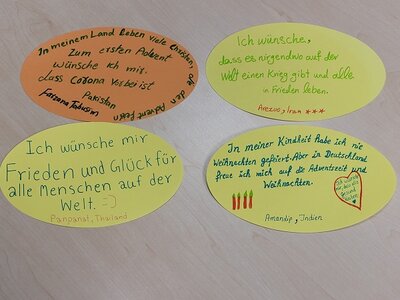 In meinem Land leben viele Christen, die den Advent feiern
Zum ersten Advent
wünsche ich mir.
dass Corona vorbei ist
Pakistan
Farzana Tabassum
Ich wünsche,
dass es nirgendwo auf der
Welt einen Krieg gibt und alle
in Frieden leben.
Arezuo, Iran ***
Ich wünsche mir
Frieden und Glück für
alle Menschen auf der
Welt. =)
Panpanat, Thailand
In meiner Kindheit habe ich nie
Weihnachten gefeiert. Aber in Deutschland
freue ich mich auf die Adventzeit und
Weihnachten.
Amandip, Indien